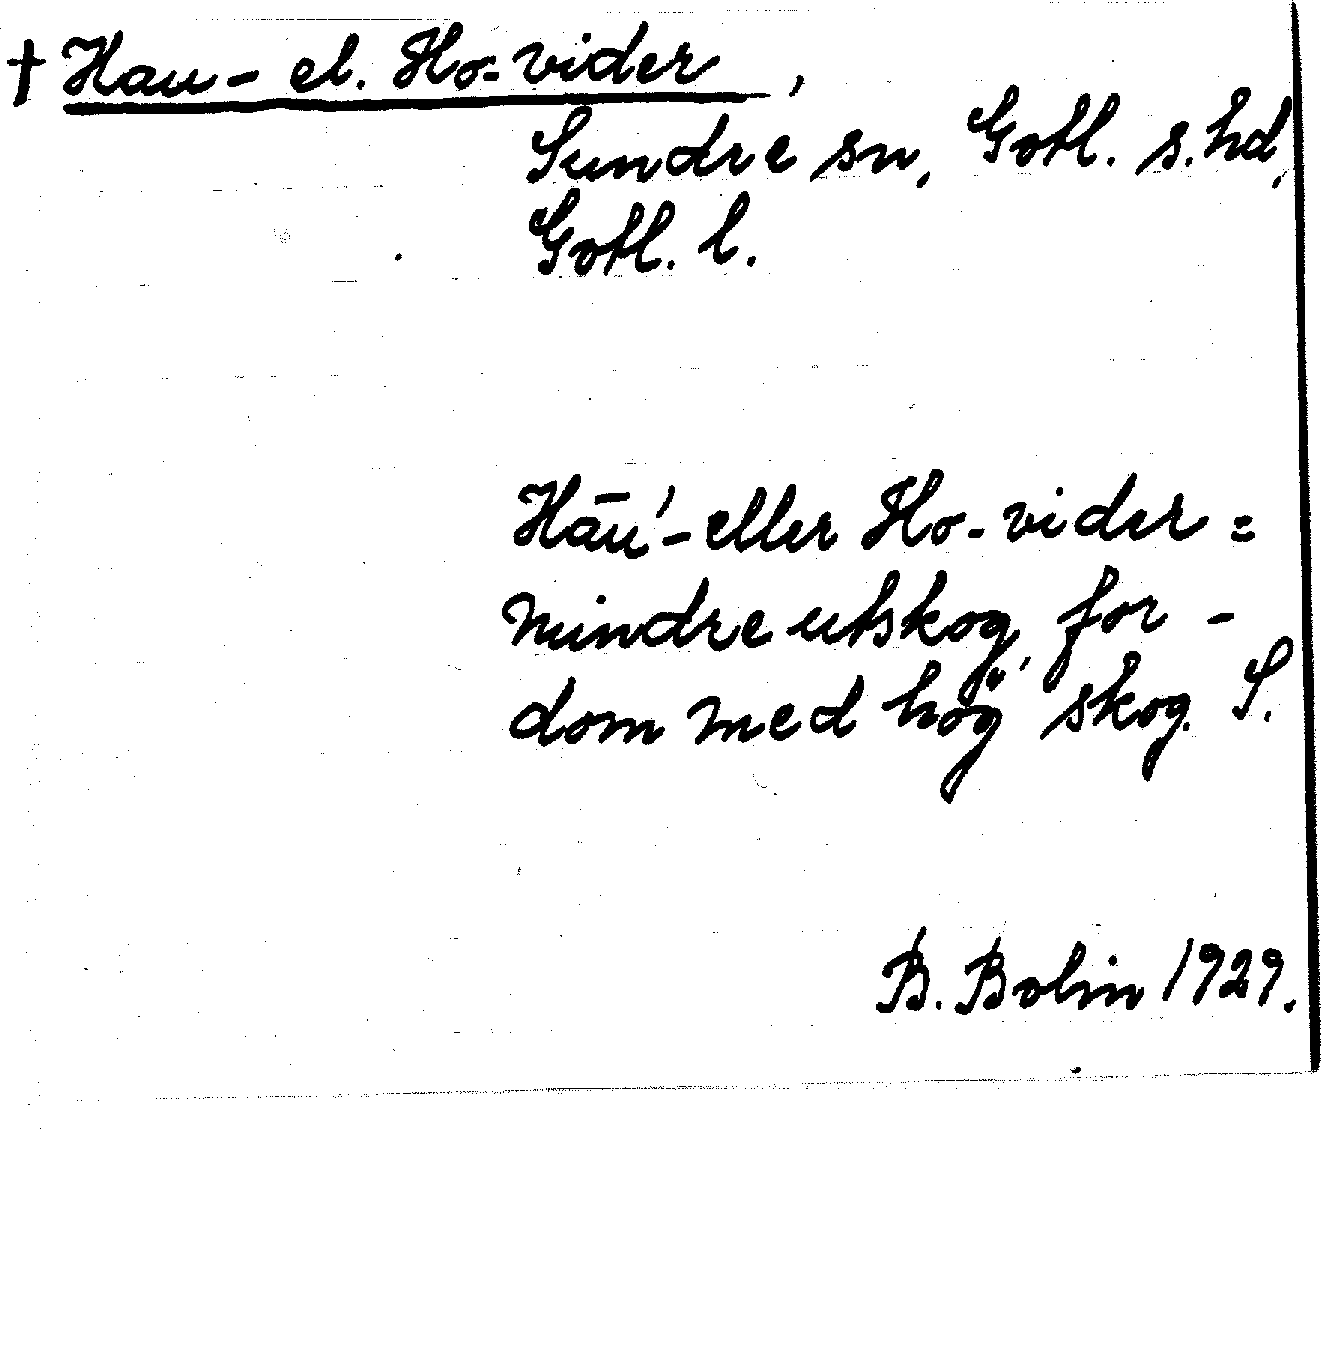 † Hau- el. Ho-vider,
Sundre sn, Gotl. s. hd,
Gotl. l.
Hāu'- eller Ho-vider =
mindre utskog, for -
dom med hög skog. S.
B. Bolin 1929.